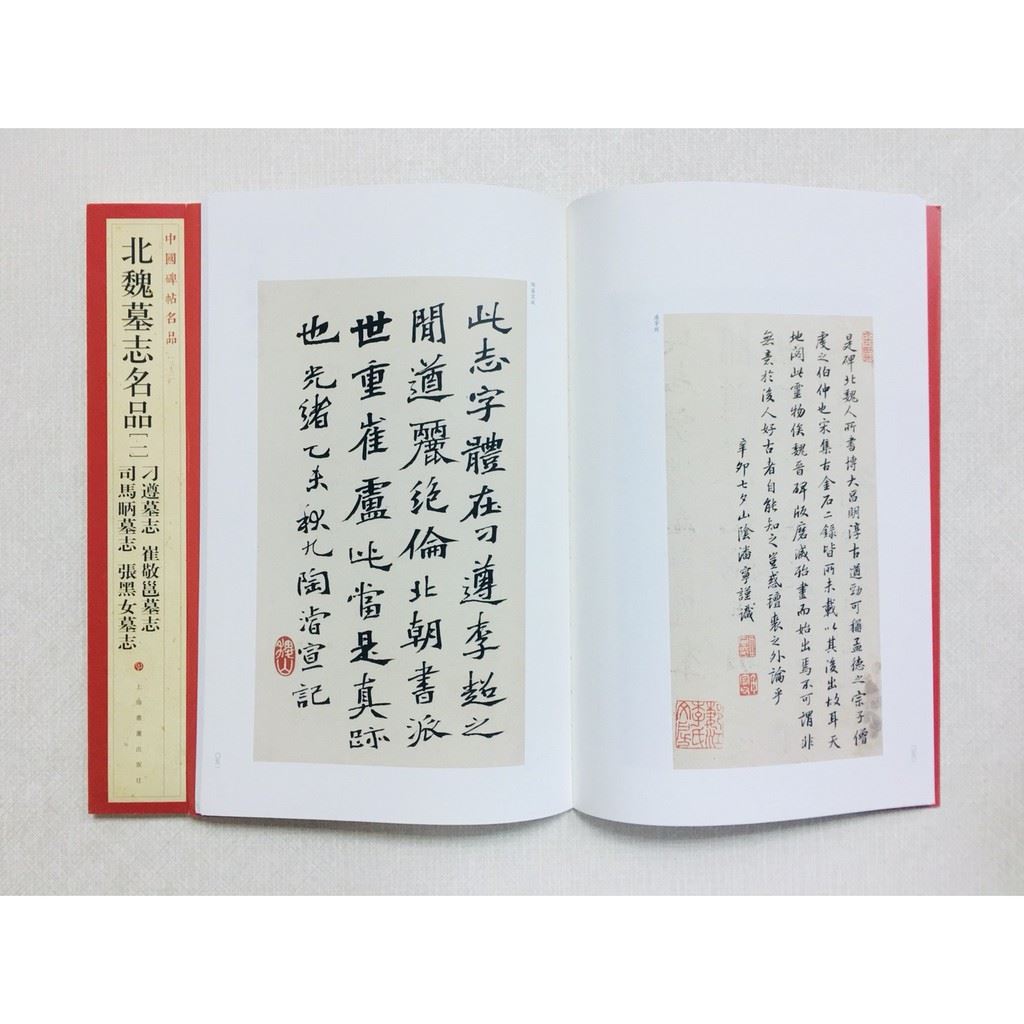 中國碑帖名品
北魏墓志名品[二]
刁遵墓志 崔敬邕墓志
司馬昞墓志 張黑女墓志
上海書畫出版社
此志字體在刁遵李超之
間遒麗絶倫北朝書派
世重崔盧此當是真跡
也光緒乙未秋九陶濬宣記
是碑北魏人所書博大昌明淳古遒勁可稱孟德之宗子僧
虔之伯仲也宋集古金石二録皆所未載以其後出故耳天
地閟此靈物俟魏晉碑版磨滅殆盡而始出焉不可謂非
無意於後人好古者自能知之豈惑褚裴之外論乎
辛卯七夕山陰潘寧謹識